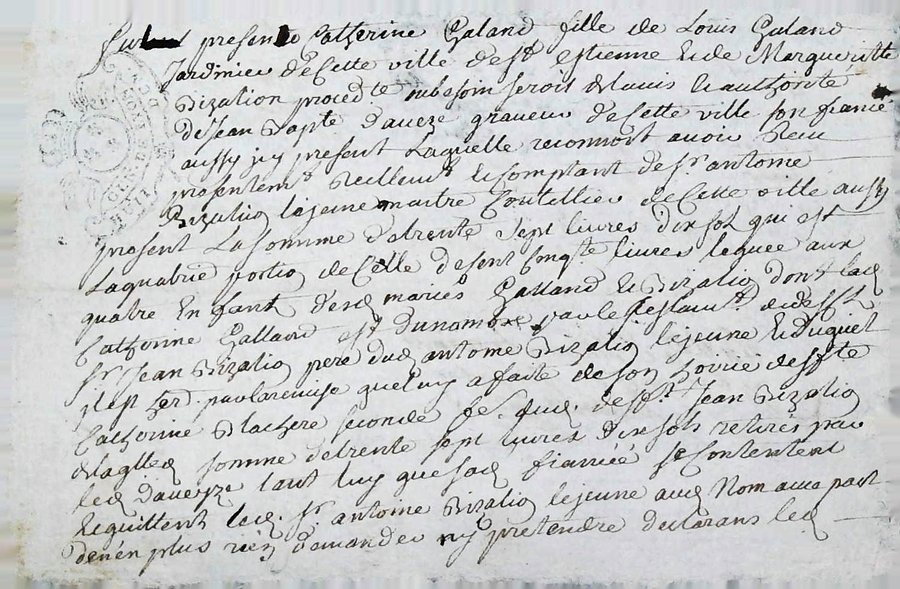 presente Catherine Galand fille de Louis Galand
Jardinier de Cette ville de St estienne & de Margueritte
Bizalion proced.te aubesoin seroit de lavis & authorité
de Jean Bapte Daveze graveur de Cette ville son fiancé
aussy icy present Laquelle reconnoit avoir Receu
presentemt Reellemt & Comptant de Sr antoine
Bizalion lejeune maitre Coutellier de Cette ville aussy
present La somme de trente sept livres dix sols qui est
Laquatrie portion de Celle de Cent Cinqte livres leguée aux
quatre Enfants desd mariés Galland & Bizalion dont lad
Catherine Galland est dunombre par le testamt dudefft
Sr Jean Bizalion pere dud antoine Bizalion lejeune & duquel
il est herr. parlaremise que luy a faite de son hoirie deffte
Catherine Blachere seconde fe. dud. defft Jean Bizalion
de laqlle somme de trente sept livres dix sols retirés par
led daveze tant luy que sad fiancée se Contentent
& quittent led. Sr antoine Bizalion lejeune aud Nom avec pact
denen plus rien demander ny pretendre declarans led